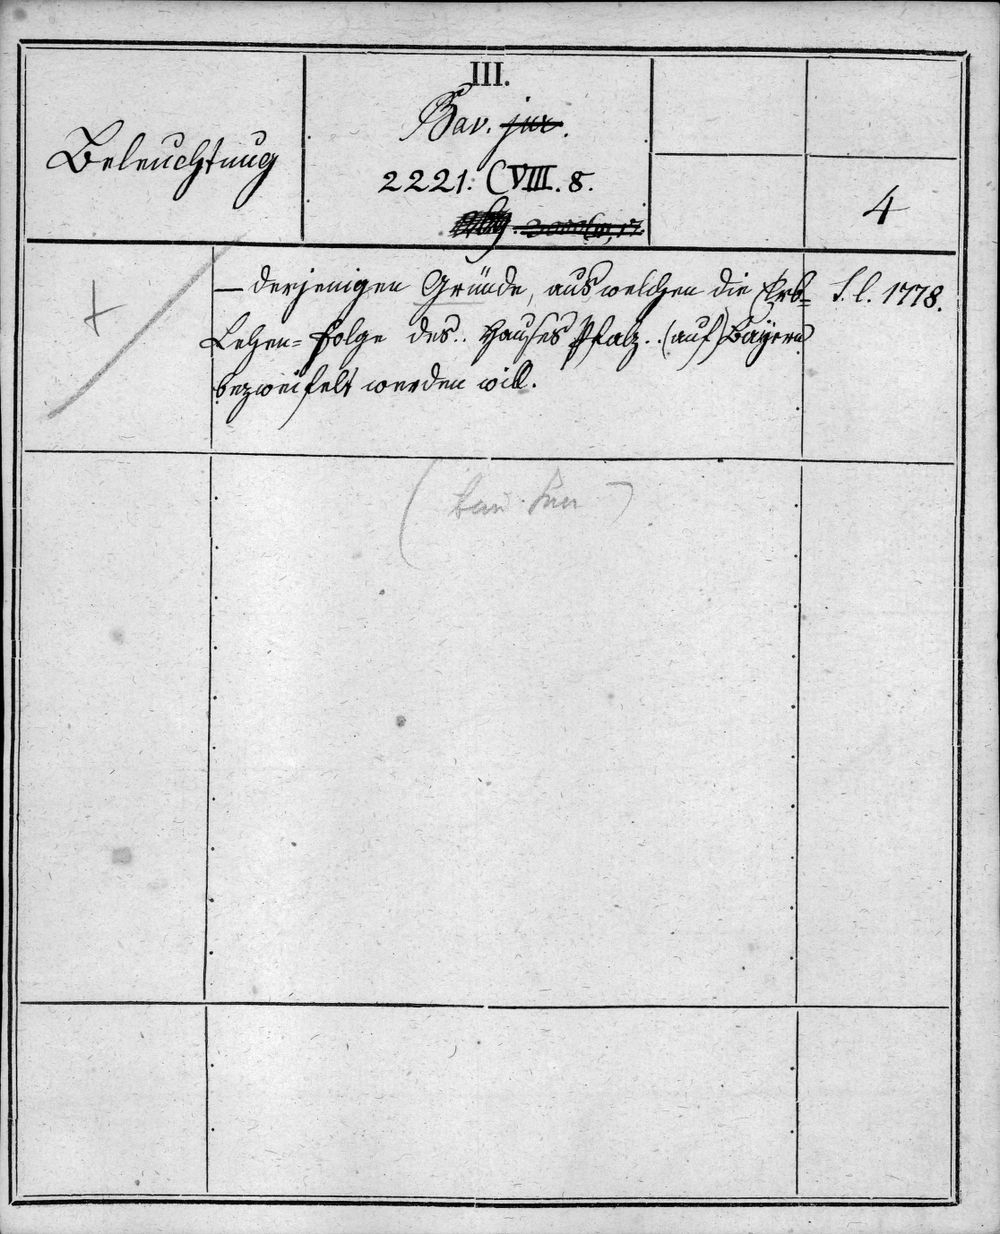 III.
Beleuchtung
Bav. jur.
2221. CVIII. 8.
4
— derjenigen Gründe, aus welchen die Erb=
S. l. 1778.
Lehen=Folge des.. Hauses Pfalz.. (auf) Bayern
bezweifelt werden will.